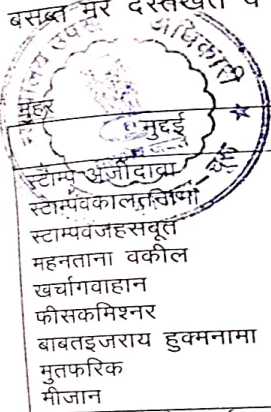 बसब्त मेरे दस्तखतों व
अधिकारी
मुहर
मुद्दई
स्टाम्प अर्जीदावा
स्टाम्पवकालतनामा
स्टाम्पवजहसबूत
महनताना वकील
खर्चागवाहान
फीसकमिश्नर
बाबतइजराय हुक्मनामा
मुतफरिक
मीजान